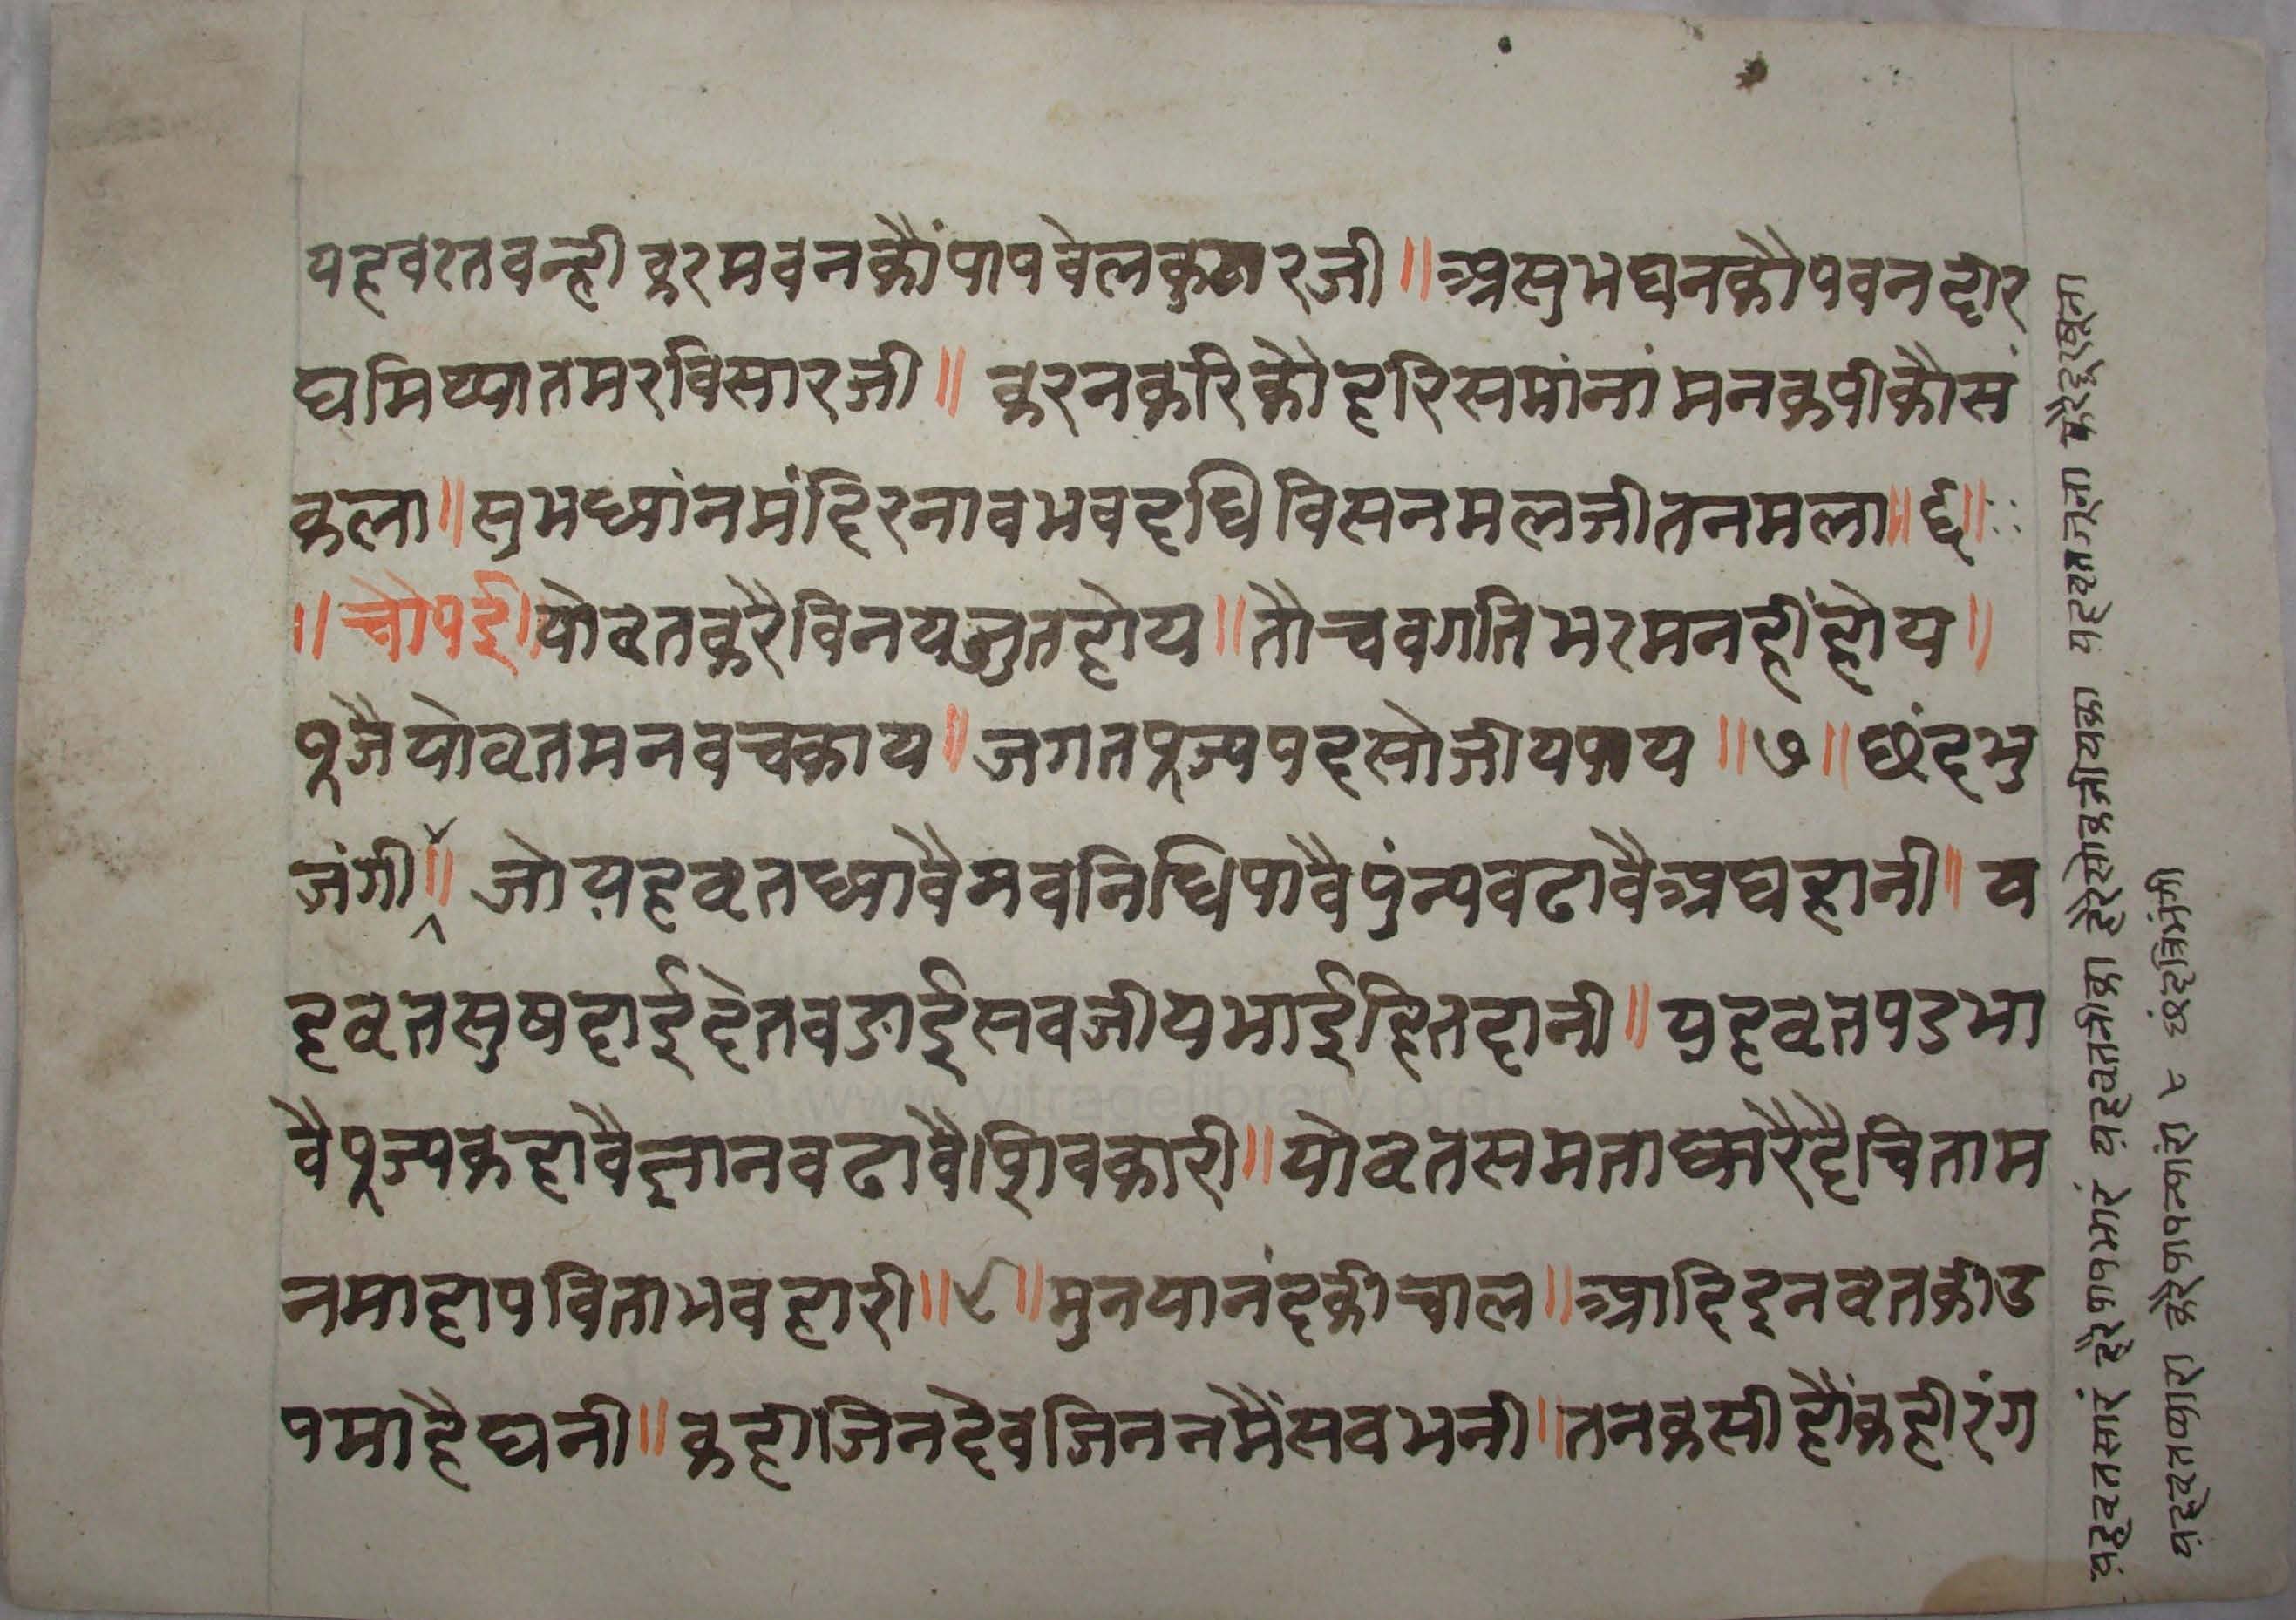 यहवरतवन्ही करमवनकौंपापवेलकुठारजी॥ असुभघनकौपवनदीर
घमिथ्यातमरविसारजी॥ करनकरिकौहरिसमांनांमनकपीकौसं
कला॥ सुभध्यांनमंदिरनावभवदधि विसनमलजीतनमला॥ ६॥
॥ चौपई॥ योव्रतकरैविनयजुतहोय॥ तौचवगतिभरमनहींहोय॥
पूजैयोव्रतमनवचकाय॥ जगतपूज्यपदसोजीयपाय॥ ७॥ छंदभु
जंगी॥ जोयहव्रतध्यावैभवनिधिपावैपुंन्यवढावैअघहानी॥ य
हव्रतसुषदाईदेतवडाईसवजीयभाईहितदानी॥ यहव्रतपडभा
वैपूज्यकहावैज्ञानवढावैशिवकारी॥ योव्रतसमताधारैदैचिताम
नमाहापविताभवहारी॥ ८॥ मुनयानंदकीचाल॥ आदिदनव्रतकीउ
पमाहैघनी॥ कहीजिनदेवजिननमैंसवभनी॥ तनकसीहौंकहीरंग
यहव्रतसारं हरैपापभारं यहव्रतनीका हैरसोइजीयका यहव्रतजूना करैदूरषूना
यहव्रतप्यारा करैपापन्यारा ८ छंदत्रिभंगी
www.vitragelibrary.org